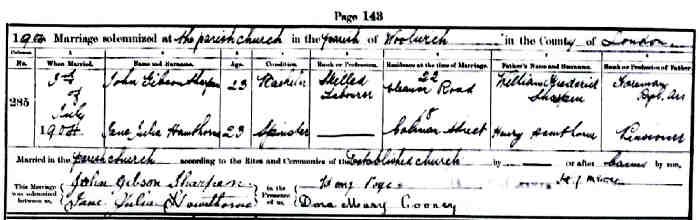 Page 143
1904 Marriage solemnized at the parish church in the Parish of Woolwich in the County of London
Columns 1 2 3 4 5 6 7 8
No. When Married. Name and Surname. Age. Condition. Rank or Profession. Residence at the time of Marriage. Father's Name and Surname. Rank or Profession of Father.
285
3rd of July 1904 John Gibson Sharpin 23 Bachelor Skilled Labourer 22 Road William Frederick Sharpin Foreman
Jane Julia Hawthorne 23 Spinster 18 Street Henry Pensioner
Married in the parish church according to the Rites and Ceremonies of the Established church by or after banns by me,
This Marriage was solemnized between us, John Gibson Sharpin Jane Julia Hawthorne in the Presence of us, Dora Mary Cooney